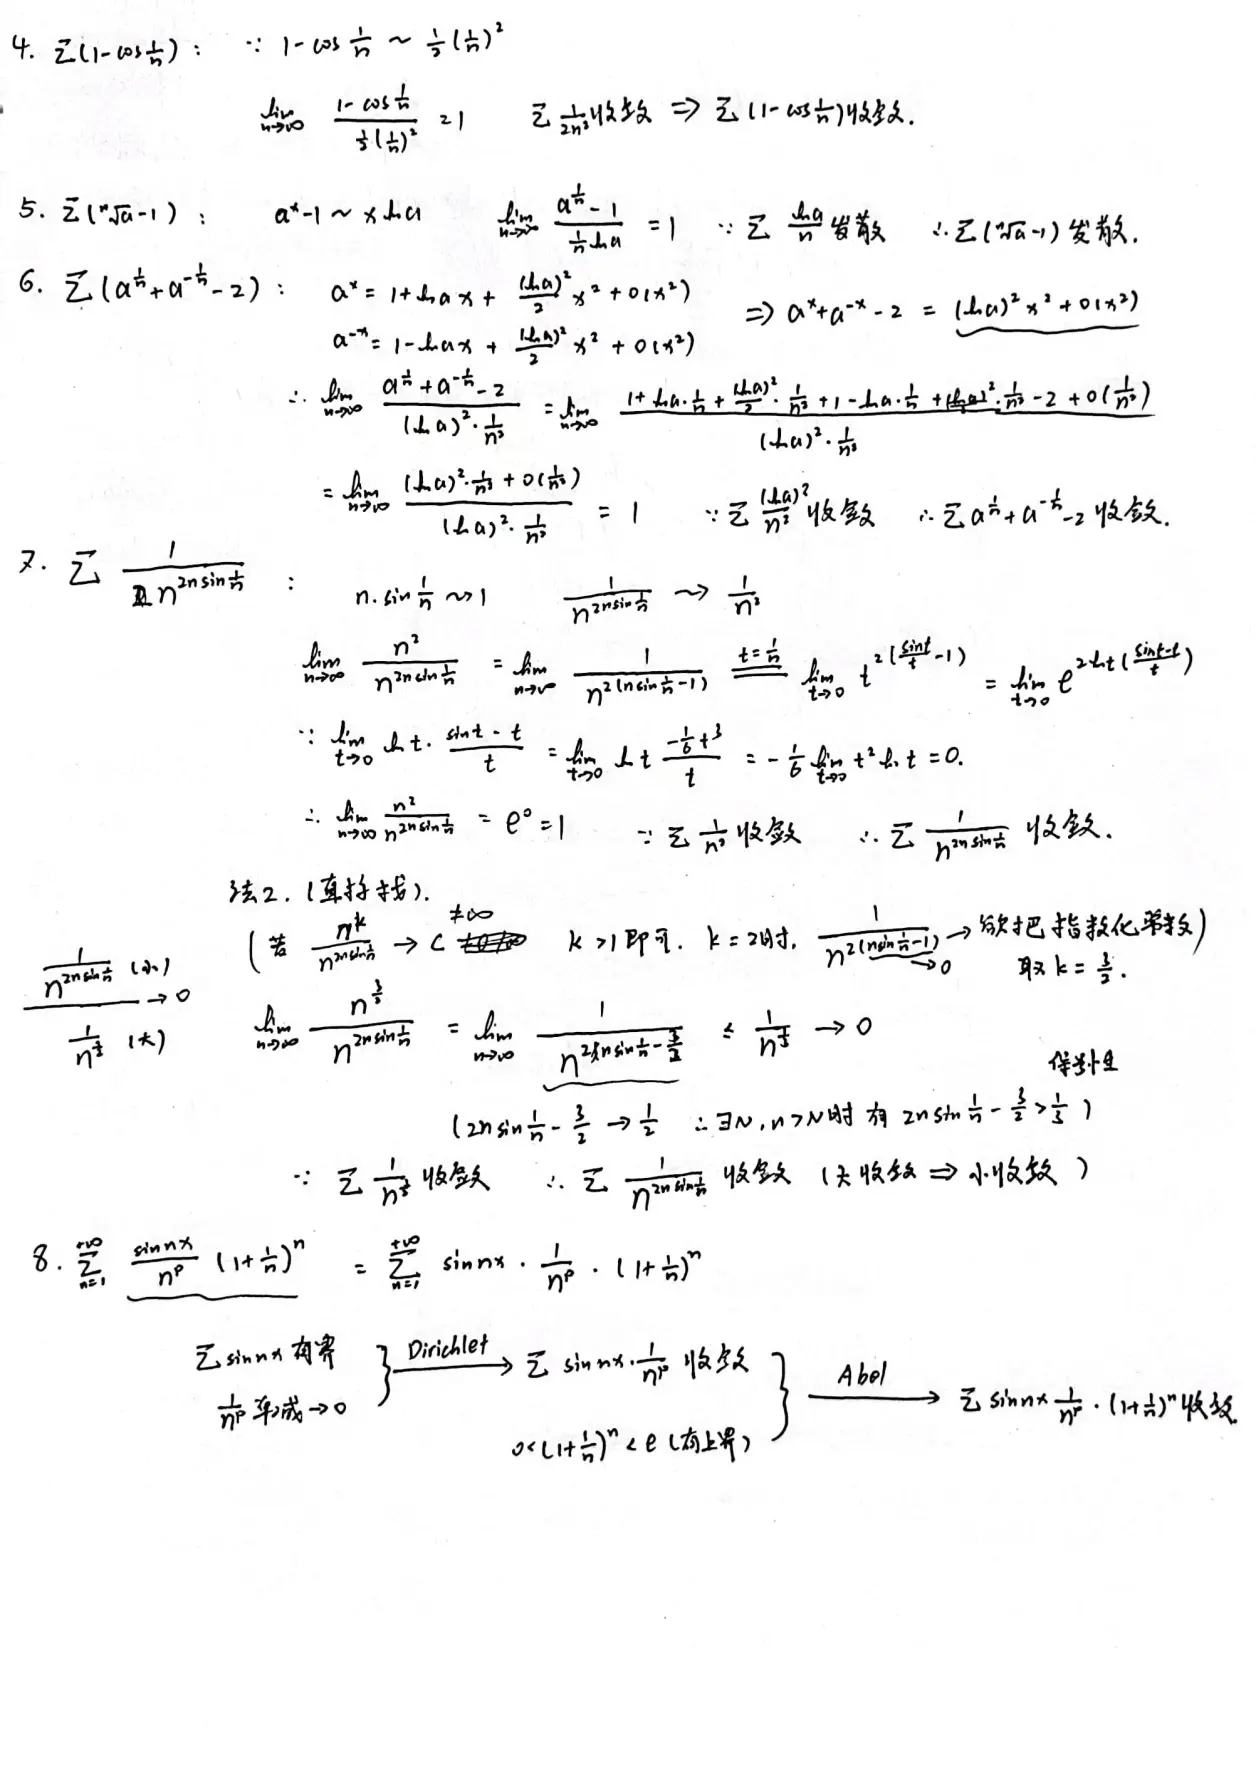 4. Σ(1-cos 1/n): ∵ 1-cos 1/n ~ 1/2 (1/n)²
lim n→∞ (1-cos 1/n)/(1/2 (1/n)²) = 1 Σ 1/2n² 收敛 ⇒ Σ(1-cos 1/n)收敛.
5. Σ(ⁿ√a-1): aˣ-1 ~ x ln a lim n→∞ (a^(1/n)-1)/(1/n ln a) = 1 ∵ Σ ln a/n 发散 ∴ Σ(ⁿ√a-1)发散.
6. Σ(a^(1/n)+a^(-1/n)-2): aˣ = 1+ln a x + (ln a)²/2 x² + o(x²)
⇒ aˣ+a⁻ˣ-2 = (ln a)² x² + o(x²)
a⁻ˣ = 1-ln a x + (ln a)²/2 x² + o(x²)
∴ lim n→∞ (a^(1/n)+a^(-1/n)-2)/((ln a)²·1/n²) = lim n→∞ (1+ln a·1/n+(ln a)²/2·1/n²+1-ln a·1/n+(ln a)²/2·1/n²-2+o(1/n²))/((ln a)²·1/n²)
= lim n→∞ ((ln a)²·1/n²+o(1/n²))/((ln a)²·1/n²) = 1 ∵ Σ (ln a)²/n² 收敛 ∴ Σ a^(1/n)+a^(-1/n)-2 收敛.
7. Σ 1/n^(2n sin 1/n) : n·sin 1/n ~ 1 1/n^(2n sin 1/n) ~ 1/n²
lim n→∞ n²/n^(2n sin 1/n) = lim n→∞ 1/n^(2(n sin 1/n -1)) t=1/n lim t→0 t^(2(sin t/t -1)) = lim t→0 e^(2 ln t(sin t-t)/t)
∵ lim t→0 ln t·(sin t-t)/t = lim t→0 ln t (-1/6 t³)/t = -1/6 lim t→0 t² ln t = 0.
∴ lim n→∞ n²/n^(2n sin 1/n) = e⁰ = 1 ∵ Σ 1/n² 收敛 ∴ Σ 1/n^(2n sin 1/n) 收敛.
法2. (直接找).
(若 n^k/n^(2n sin 1/n) → c ≠∞ k>1即可. k=2时, 1/n^(2(n sin 1/n -1)) →0 → 欲把指数化常数)
取 k=3/2.
1/n^(2n sin 1/n) (小) / 1/n^(3/2) (大) → 0
lim n→∞ n^(3/2)/n^(2n sin 1/n) = lim n→∞ 1/n^(2n sin 1/n - 3/2) ≤ 1/n^(1/3) → 0
保号性
(2n sin 1/n - 3/2 → 1/2 ∴ ∃N, n>N时 有 2n sin 1/n - 3/2 > 1/3)
∵ Σ 1/n^(3/2) 收敛 ∴ Σ 1/n^(2n sin 1/n) 收敛 (大收敛 ⇒ 小收敛)
8. Σ n=1 +∞ sin nx/nᵖ (1+1/n)ⁿ = Σ n=1 +∞ sin nx · 1/nᵖ · (1+1/n)ⁿ
Σ sin nx 有界
1/nᵖ 单减→0
} Dirichlet → Σ sin nx·1/nᵖ 收敛
0<(1+1/n)ⁿ<e (有上界)
} Abel → Σ sin nx 1/nᵖ·(1+1/n)ⁿ收敛